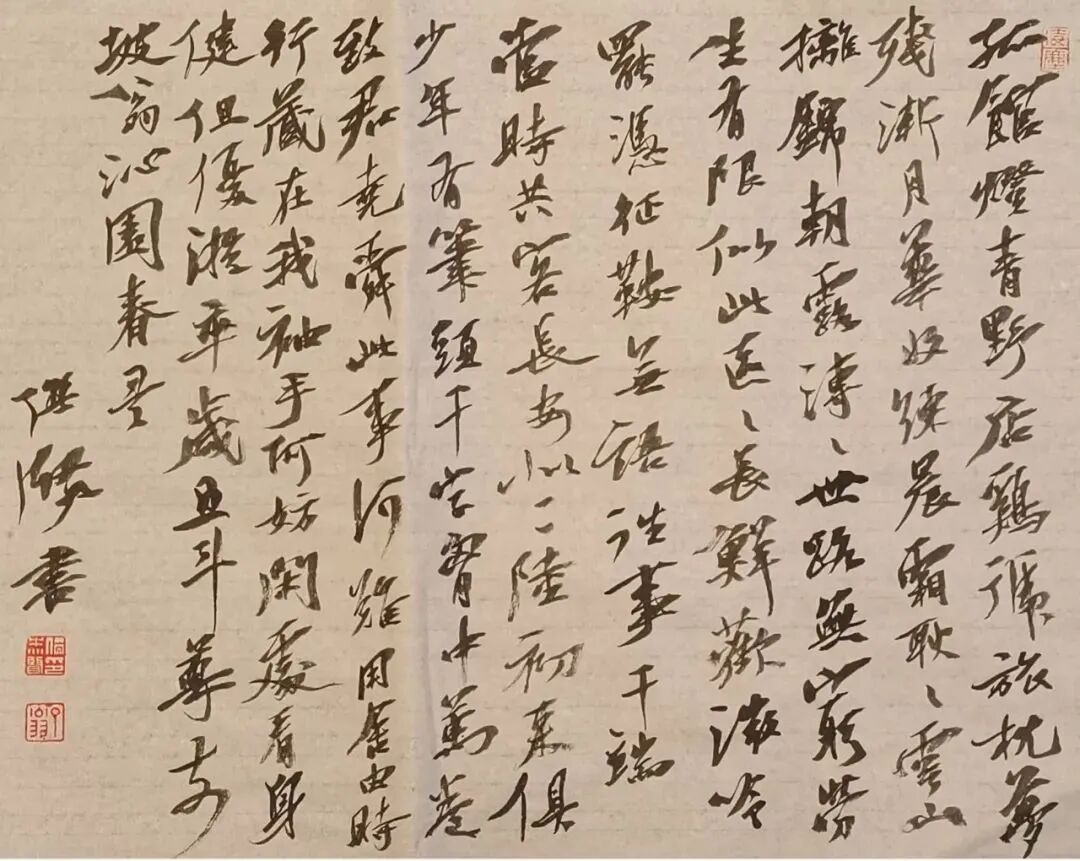 孤館燈青野店鷄號旅枕夢
殘漸月華收練晨霜耿〻雲山
摛錦朝露漙〻世路無窮勞
生有限似此區〻長鮮歡微吟
罷憑征鞍無語往事千端
當時共客長安似二陸初來俱
少年有筆頭千字胸中萬卷
致君堯舜此事何難用舍由時
行藏在我袖手何妨閑處看身
健但優游卒歲且斗尊前
坡翁沁園春
書